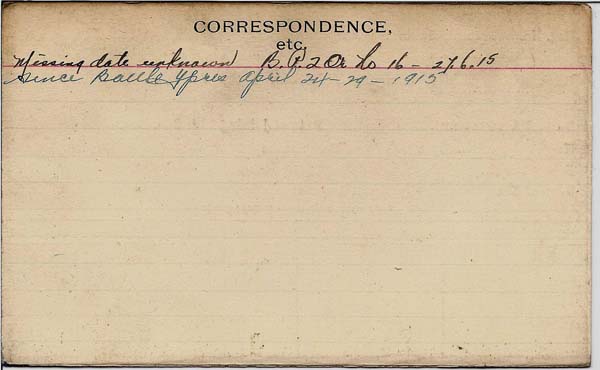 CORRESPONDENCE,
etc.
Missing date unknown B. P. 2 Or No 16 - 27.6.15
Since Battle Ypres April 24-29-1915